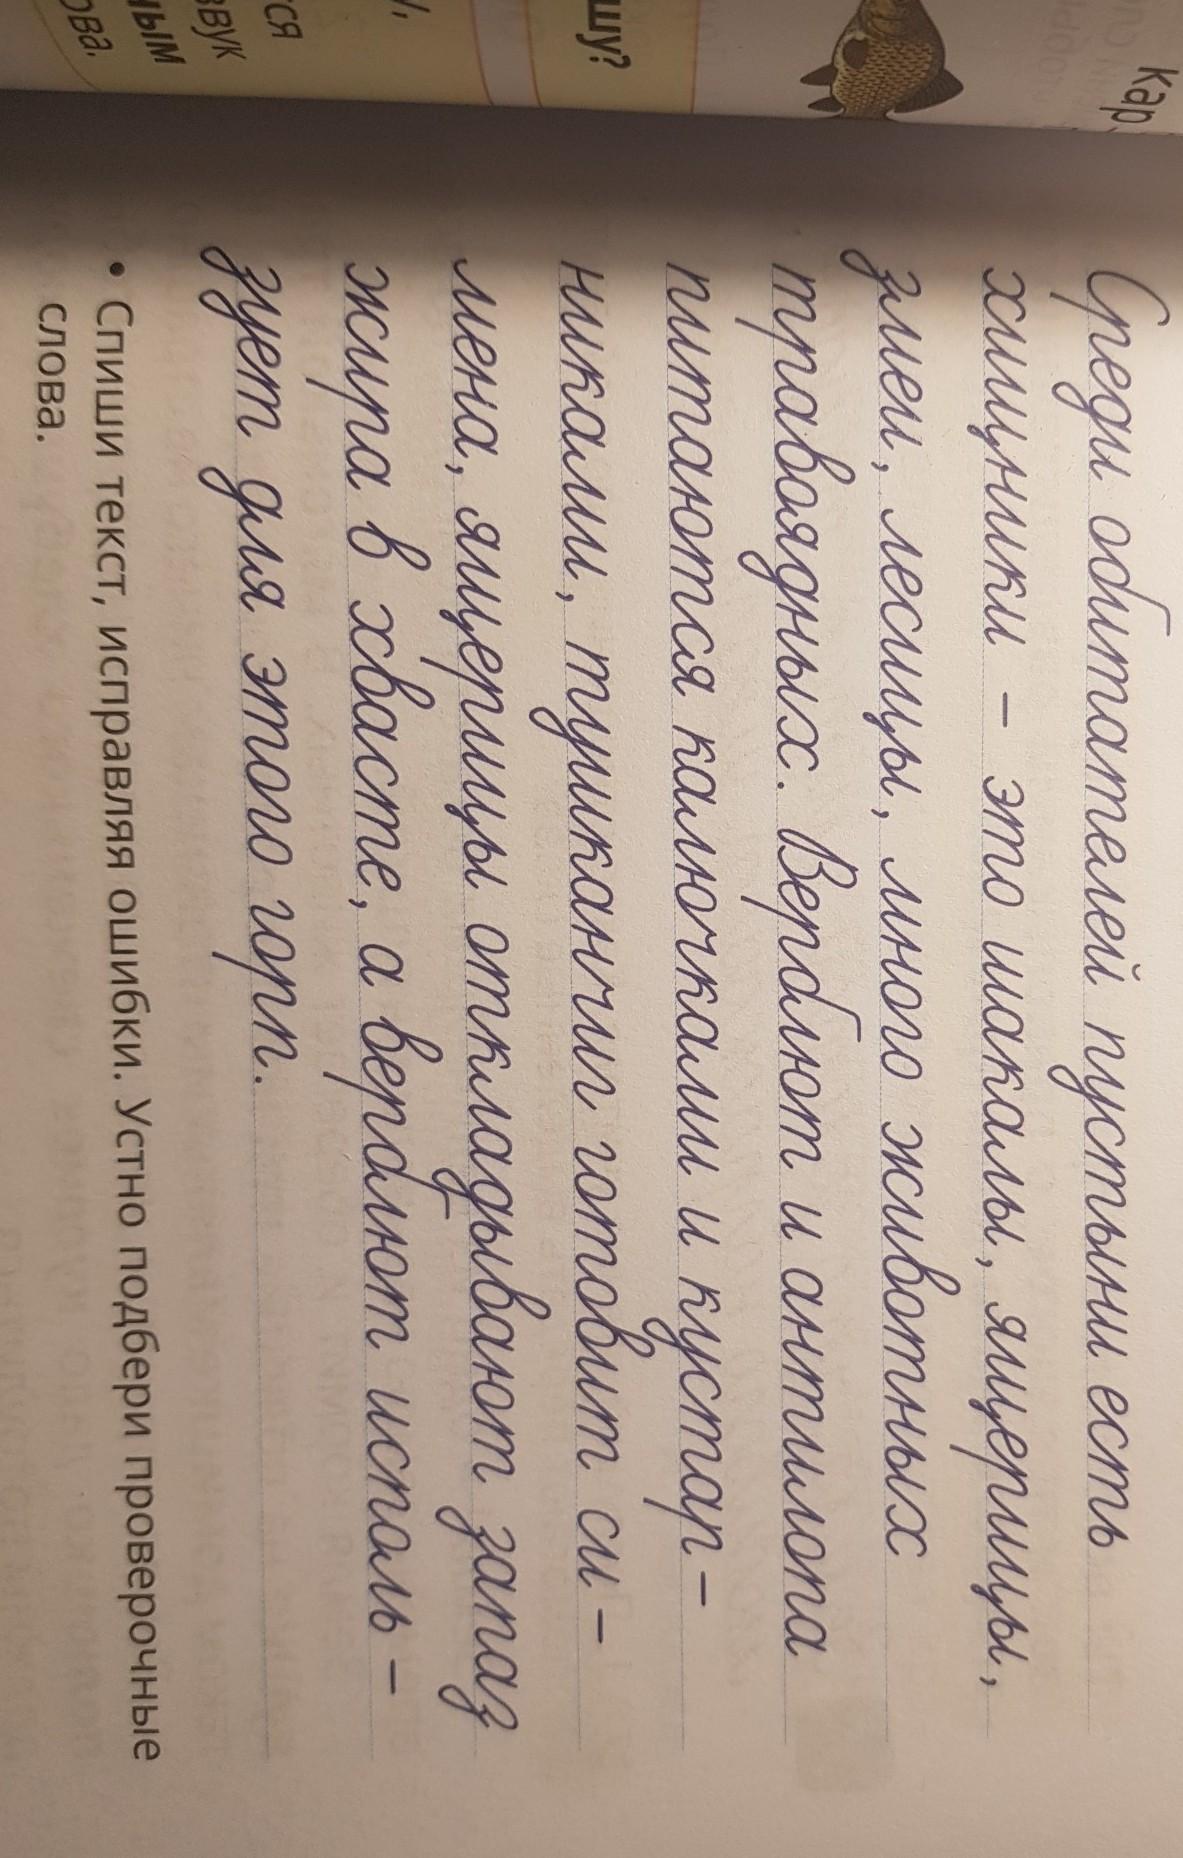 Кар
шу?
ся
звук
ным
ова.
Среди обитателей пустыни есть
хищники – это шакалы, ящерицы,
змеи, лесицы, много животных
травоядных. Верблют и антилопа
питаются калючками и кустар-
никами, тушканчиг готовит си-
мена, ящерицы откладывают запаз
жира в хвасте, а верблют исполь-
зует для этого горп.
• Спиши текст, исправляя ошибки. Устно подбери проверочные
слова.